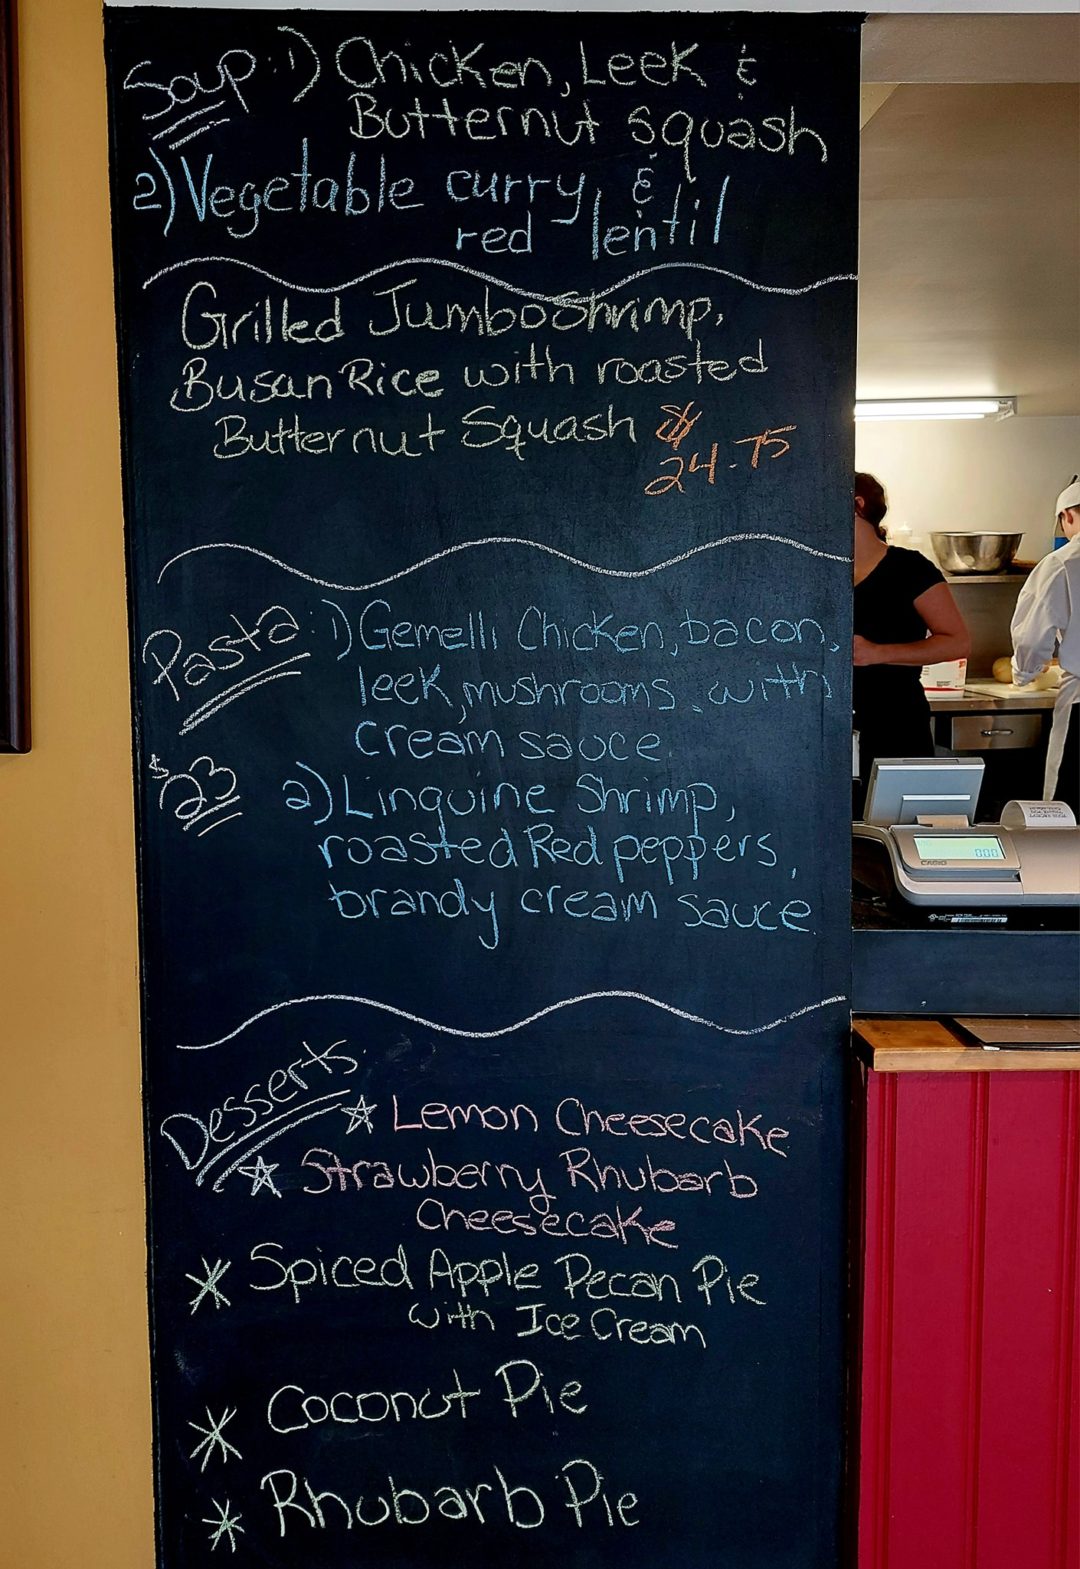 Soup: 1) Chicken, Leek &
Butternut squash
2) Vegetable curry, &
red lentil
Grilled Jumbo Shrimp,
Busan Rice with roasted
Butternut Squash
24.75
Pasta: 1) Gemelli Chicken, bacon,
leek, mushrooms, with
cream sauce.
$23
2) Linguine Shrimp,
roasted Red peppers,
brandy cream sauce
Desserts:
Lemon Cheesecake
Strawberry Rhubarb
Cheesecake
Spiced Apple Pecan Pie
with Ice Cream
Coconut Pie
Rhubarb Pie
CASIO
0.00